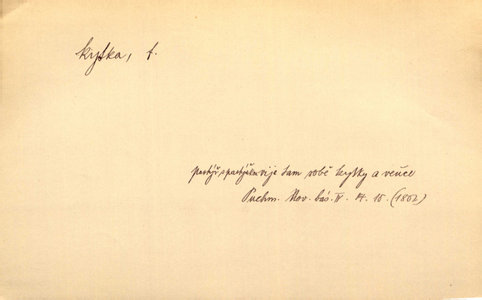 kytka, f.
Pastýř s pastýřkou vije tam sobě kytky a věnce
Puchm. Nov. bás. V. 14. 15. (1802)